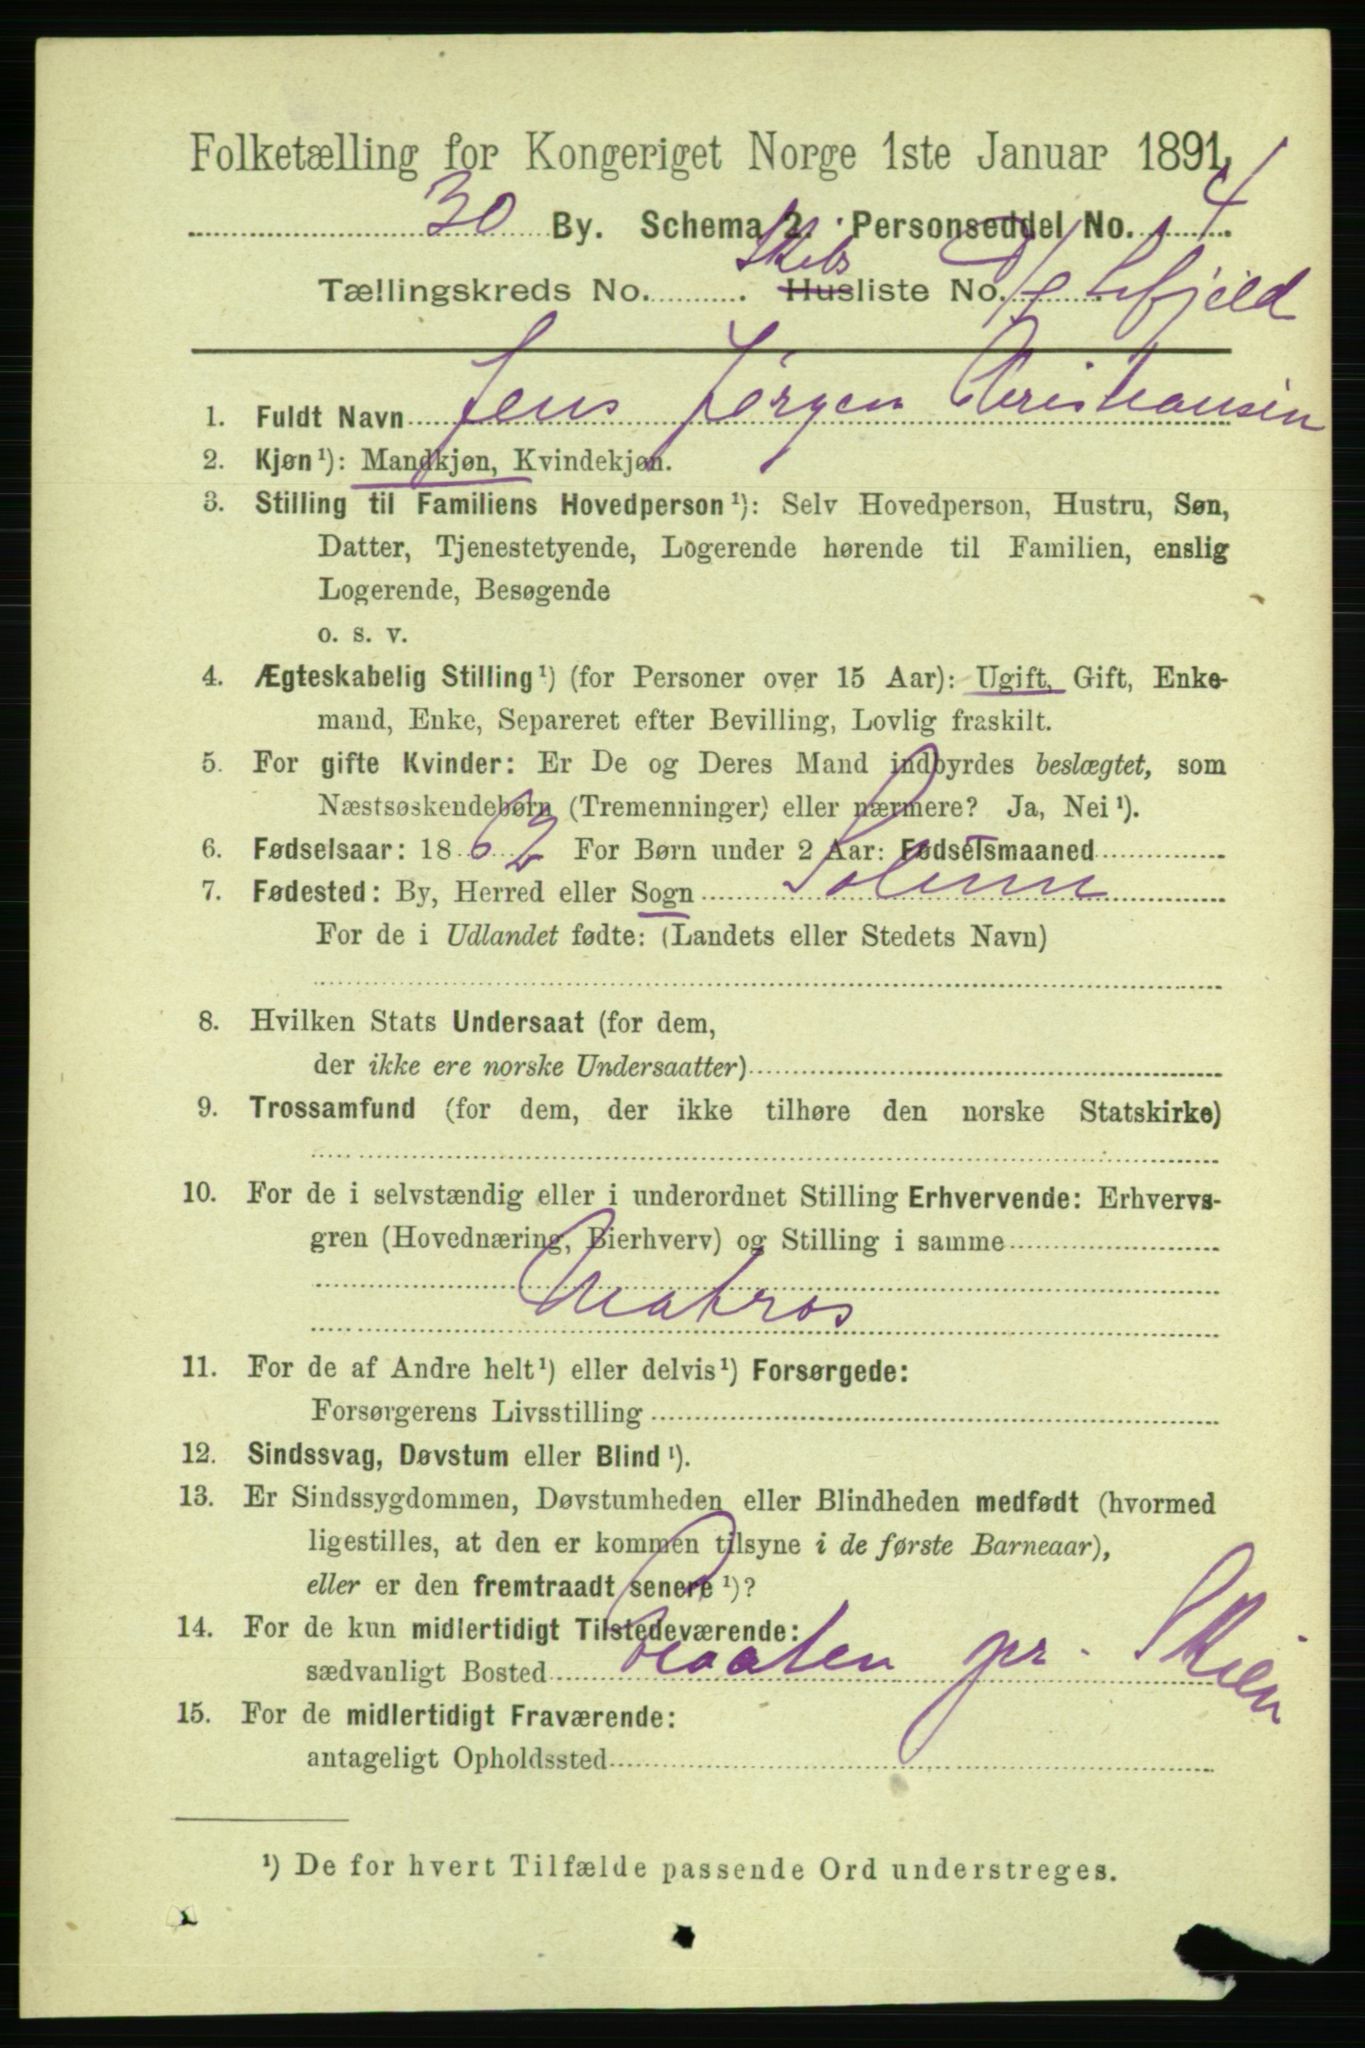 Folketælling for Kongeriget Norge 1ste Januar 1891.
30 By. Schema 2. Personseddel No. 4.
Tællingskreds No. . Skibs Husliste No. D/S fjeld
1. Fuldt Navn Jens Jørgen Christiansen
2. Kjøn¹): Mandkjøn, Kvindekjøn.
3. Stilling til Familiens Hovedperson¹): Selv Hovedperson, Hustru, Søn,
Datter, Tjenestetyende, Logerende hørende til Familien, enslig
Logerende, Besøgende
o. s. v.
4. Ægteskabelig Stilling¹) (for Personer over 15 Aar): Ugift, Gift, Enke-
mand, Enke, Separeret efter Bevilling, Lovlig fraskilt.
5. For gifte Kvinder: Er De og Deres Mand indbyrdes beslægtet, som
Næstsøskendebørn (Tremenninger) eller nærmere? Ja, Nei¹).
6. Fødselsaar: 1863 For Børn under 2 Aar: Fødselsmaaned
7. Fødested: By, Herred eller Sogn Solum
For de i Udlandet fødte: (Landets eller Stedets Navn)
8. Hvilken Stats Undersaat (for dem,
der ikke ere norske Undersaatter)
9. Trossamfund (for dem, der ikke tilhøre den norske Statskirke)
10. For de i selvstændig eller i underordnet Stilling Erhvervende: Erhvervs-
gren (Hovednæring, Bierhverv) og Stilling i samme
Matros
11. For de af Andre helt¹) eller delvis¹) Forsørgede:
Forsørgerens Livsstilling
12. Sindssvag, Døvstum eller Blind¹).
13. Er Sindssygdommen, Døvstumheden eller Blindheden medfødt (hvormed
ligestilles, at den er kommen tilsyne i de første Barneaar),
eller er den fremtraadt senere¹)?
14. For de kun midlertidigt Tilstedeværende:
sædvanligt Bosted pr. Skien
15. For de midlertidigt Fraværende:
antageligt Opholdssted
¹) De for hvert Tilfælde passende Ord understreges.